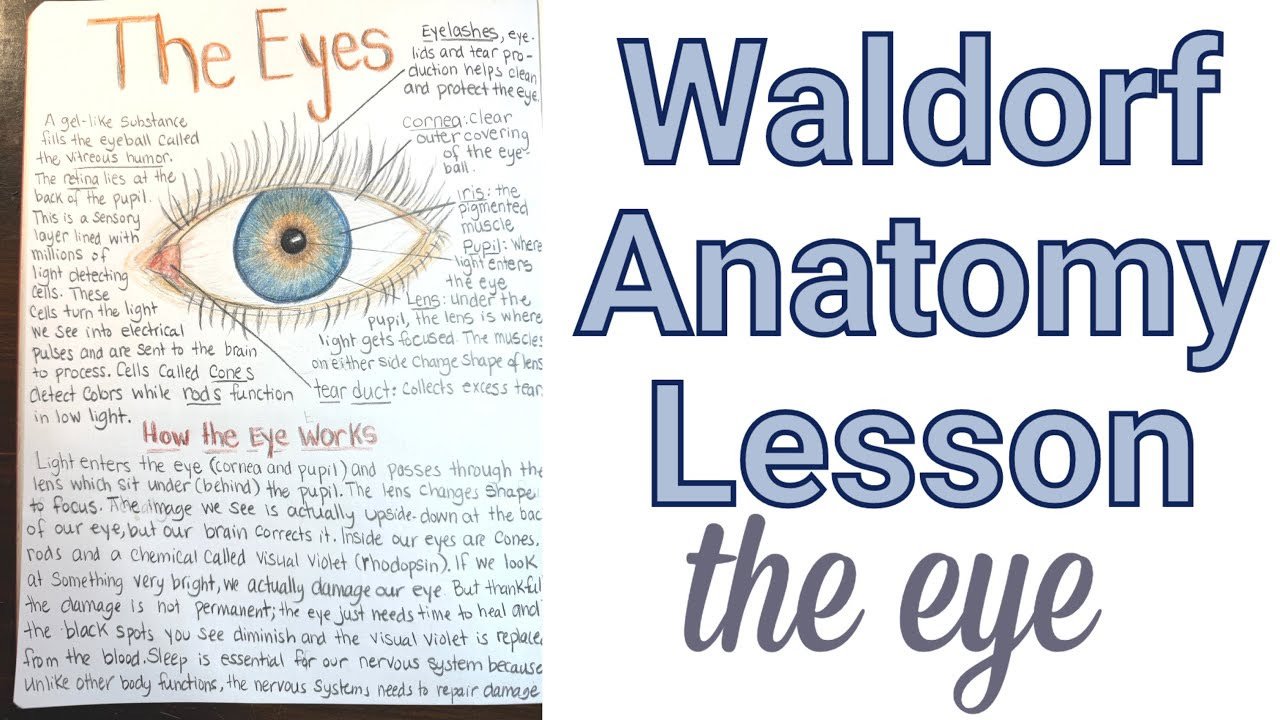 The Eyes
Eyelashes, eye-
lids and tear pro-
duction helps clean
and protect the eye.
cornea: clear
outer covering
of the eye-
ball.
Iris: the
pigmented
muscle
Pupil: where
light enters
the eye
Lens: under the
pupil, the lens is where
light gets focused. The muscles
on either side change shape of lens
tear duct: collects excess tears
A gel-like substance
fills the eyeball called
the vitreous humor.
The retina lies at the
back of the pupil.
This is a sensory
layer lined with
millions of
light detecting
cells. These
cells turn the light
we see into electrical
pulses and are sent to the brain
to process. Cells called Cones
detect colors while rods function
in low light.
How the Eye Works
Light enters the eye (cornea and pupil) and passes through the
lens which sit under (behind) the pupil. The lens changes shape
to focus. The image we see is actually upside-down at the bac
of our eye, but our brain corrects it. Inside our eyes are cones,
rods and a chemical called visual violet (rhodopsin). If we look
at something very bright, we actually damage our eye. But thankful
the damage is not permanent; the eye just needs time to heal and
the black spots you see diminish and the visual violet is replace
from the blood. Sleep is essential for our nervous system because
unlike other body functions, the nervous systems needs to repair damage
Waldorf
Anatomy
Lesson
the eye